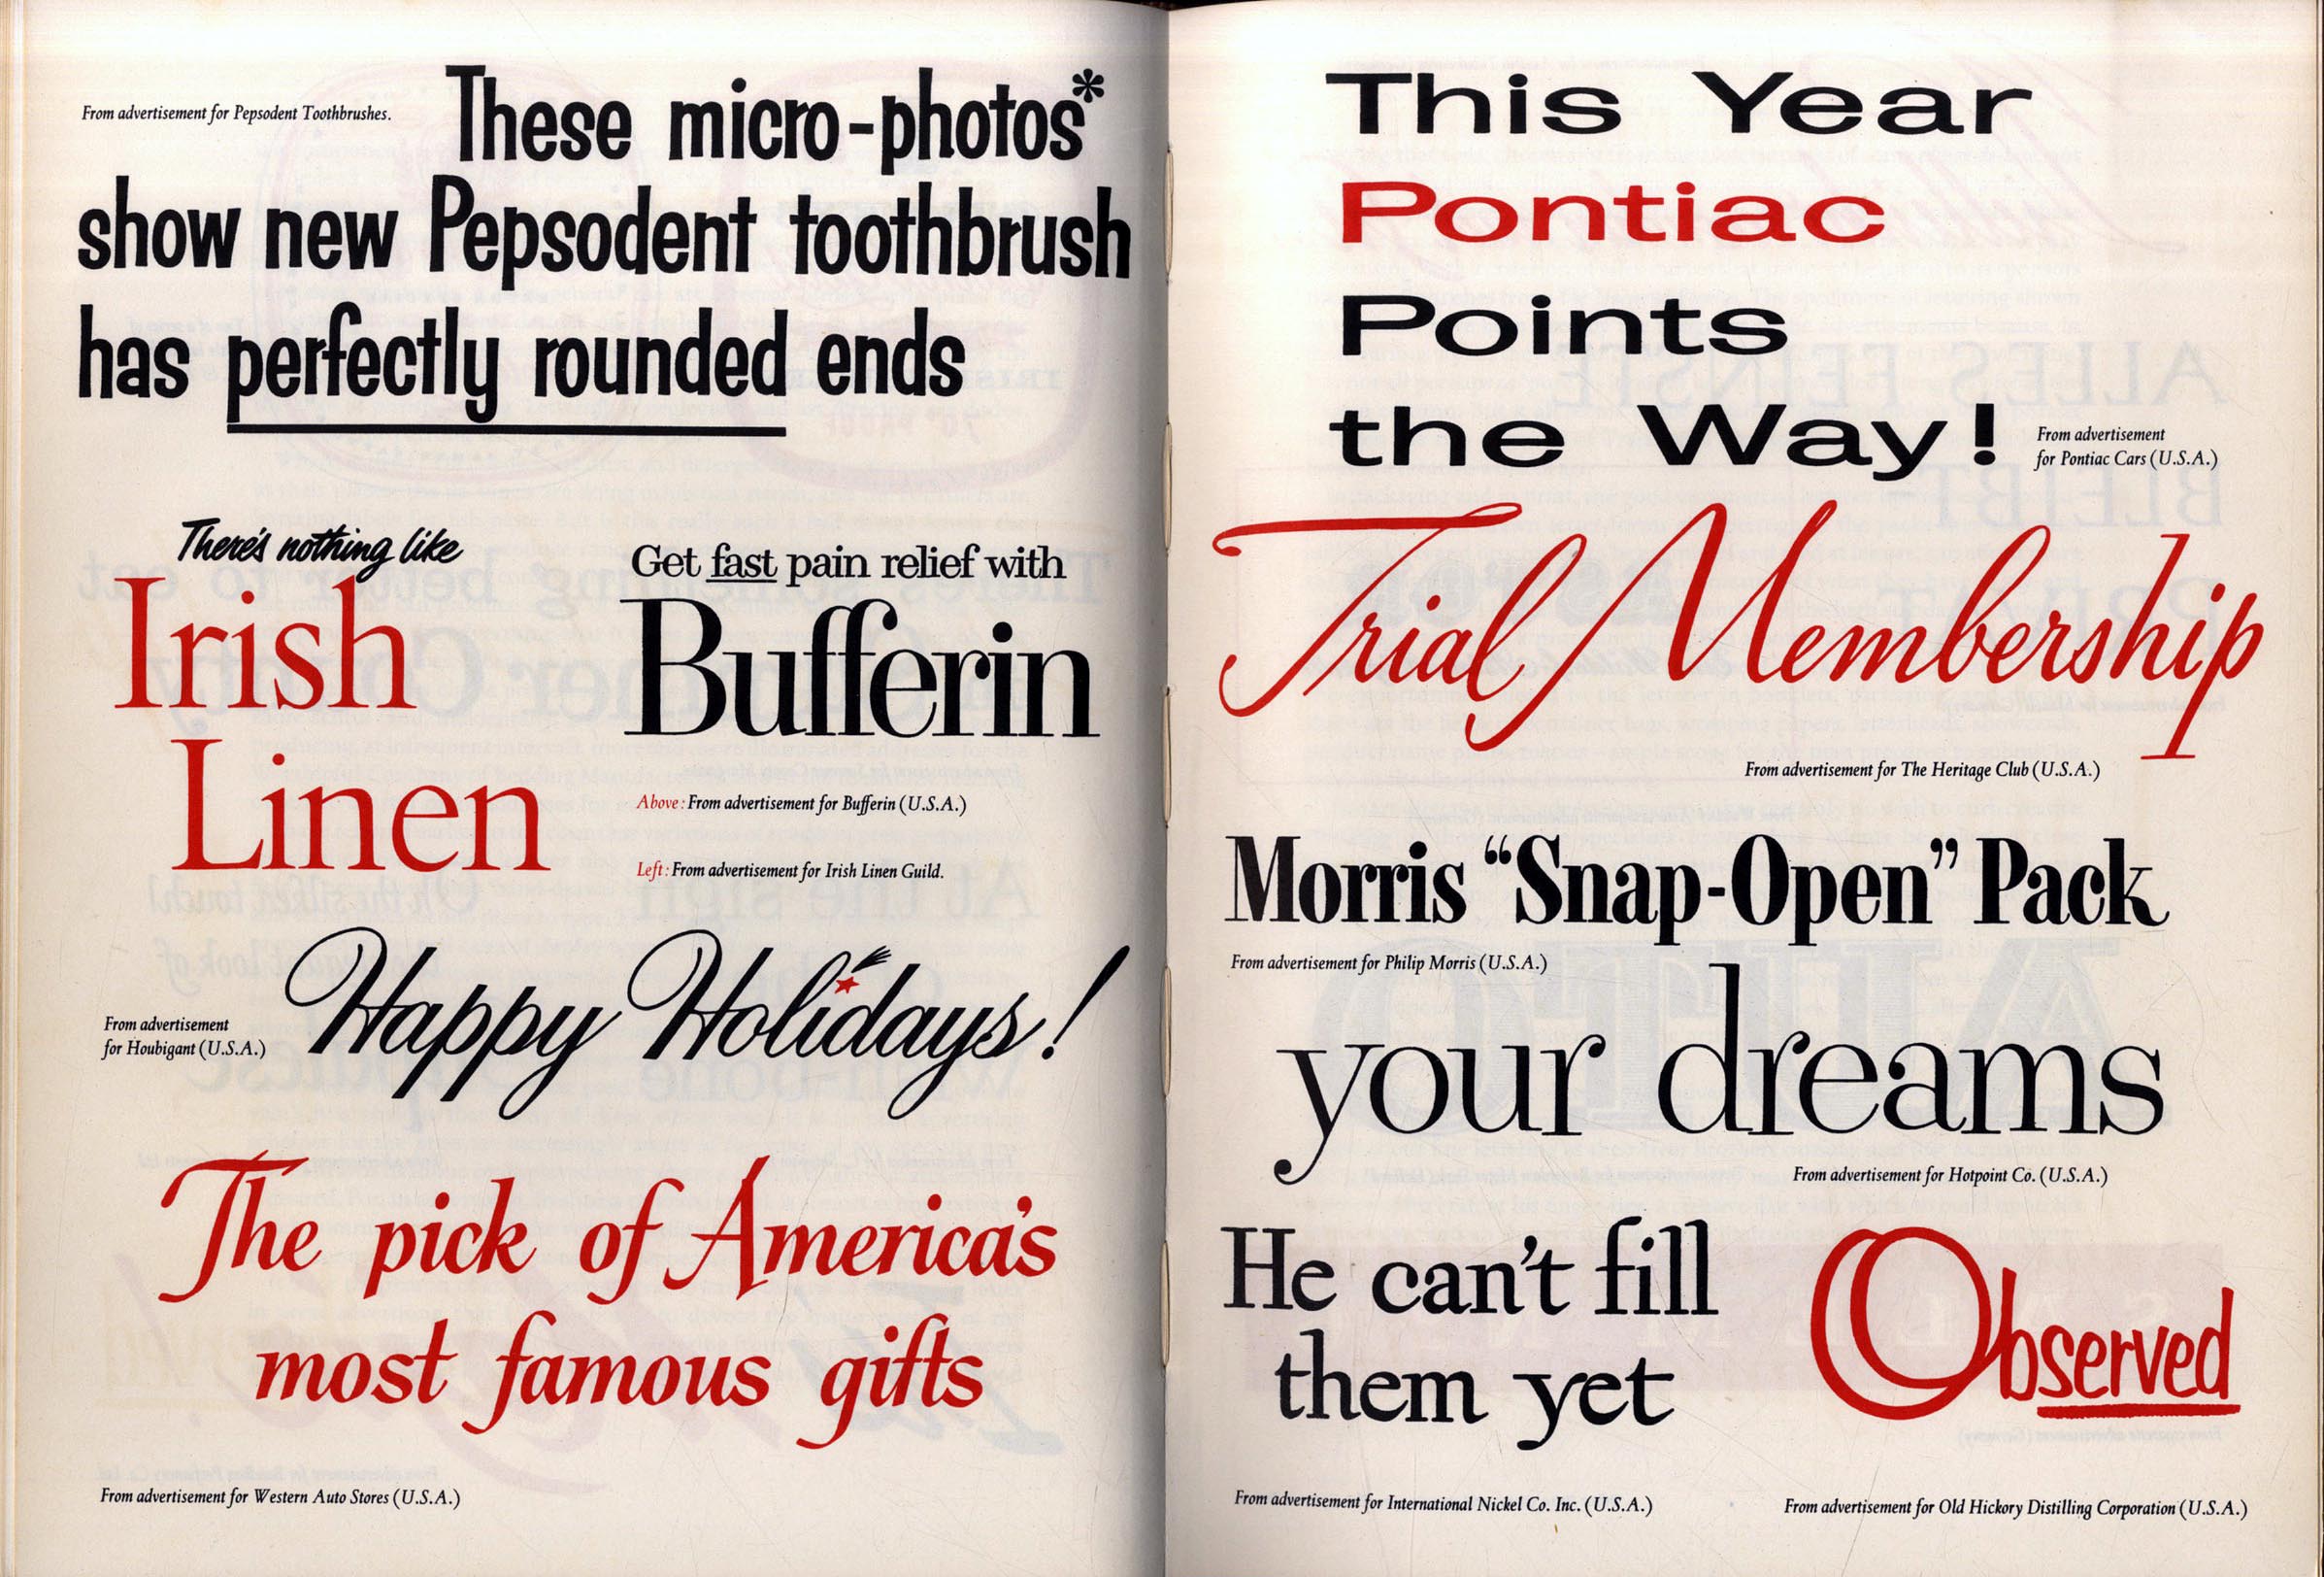 From advertisement for Pepsodent Toothbrushes.
These micro-photos*
show new Pepsodent toothbrush
has perfectly rounded ends
There's nothing like
Irish
Linen
Get fast pain relief with
Bufferin
Above: From advertisement for Bufferin (U.S.A.)
Left: From advertisement for Irish Linen Guild.
Happy Holidays!
From advertisement
for Houbigant (U.S.A.)
The pick of America's
most famous gifts
From advertisement for Western Auto Stores (U.S.A.)
This Year
Pontiac
Points
the Way!
From advertisement
for Pontiac Cars (U.S.A.)
Trial Membership
From advertisement for The Heritage Club (U.S.A.)
Morris “Snap-Open” Pack
From advertisement for Philip Morris (U.S.A.)
your dreams
From advertisement for Hotpoint Co. (U.S.A.)
He can't fill
them yet
From advertisement for International Nickel Co. Inc. (U.S.A.)
Observed
From advertisement for Old Hickory Distilling Corporation (U.S.A.)